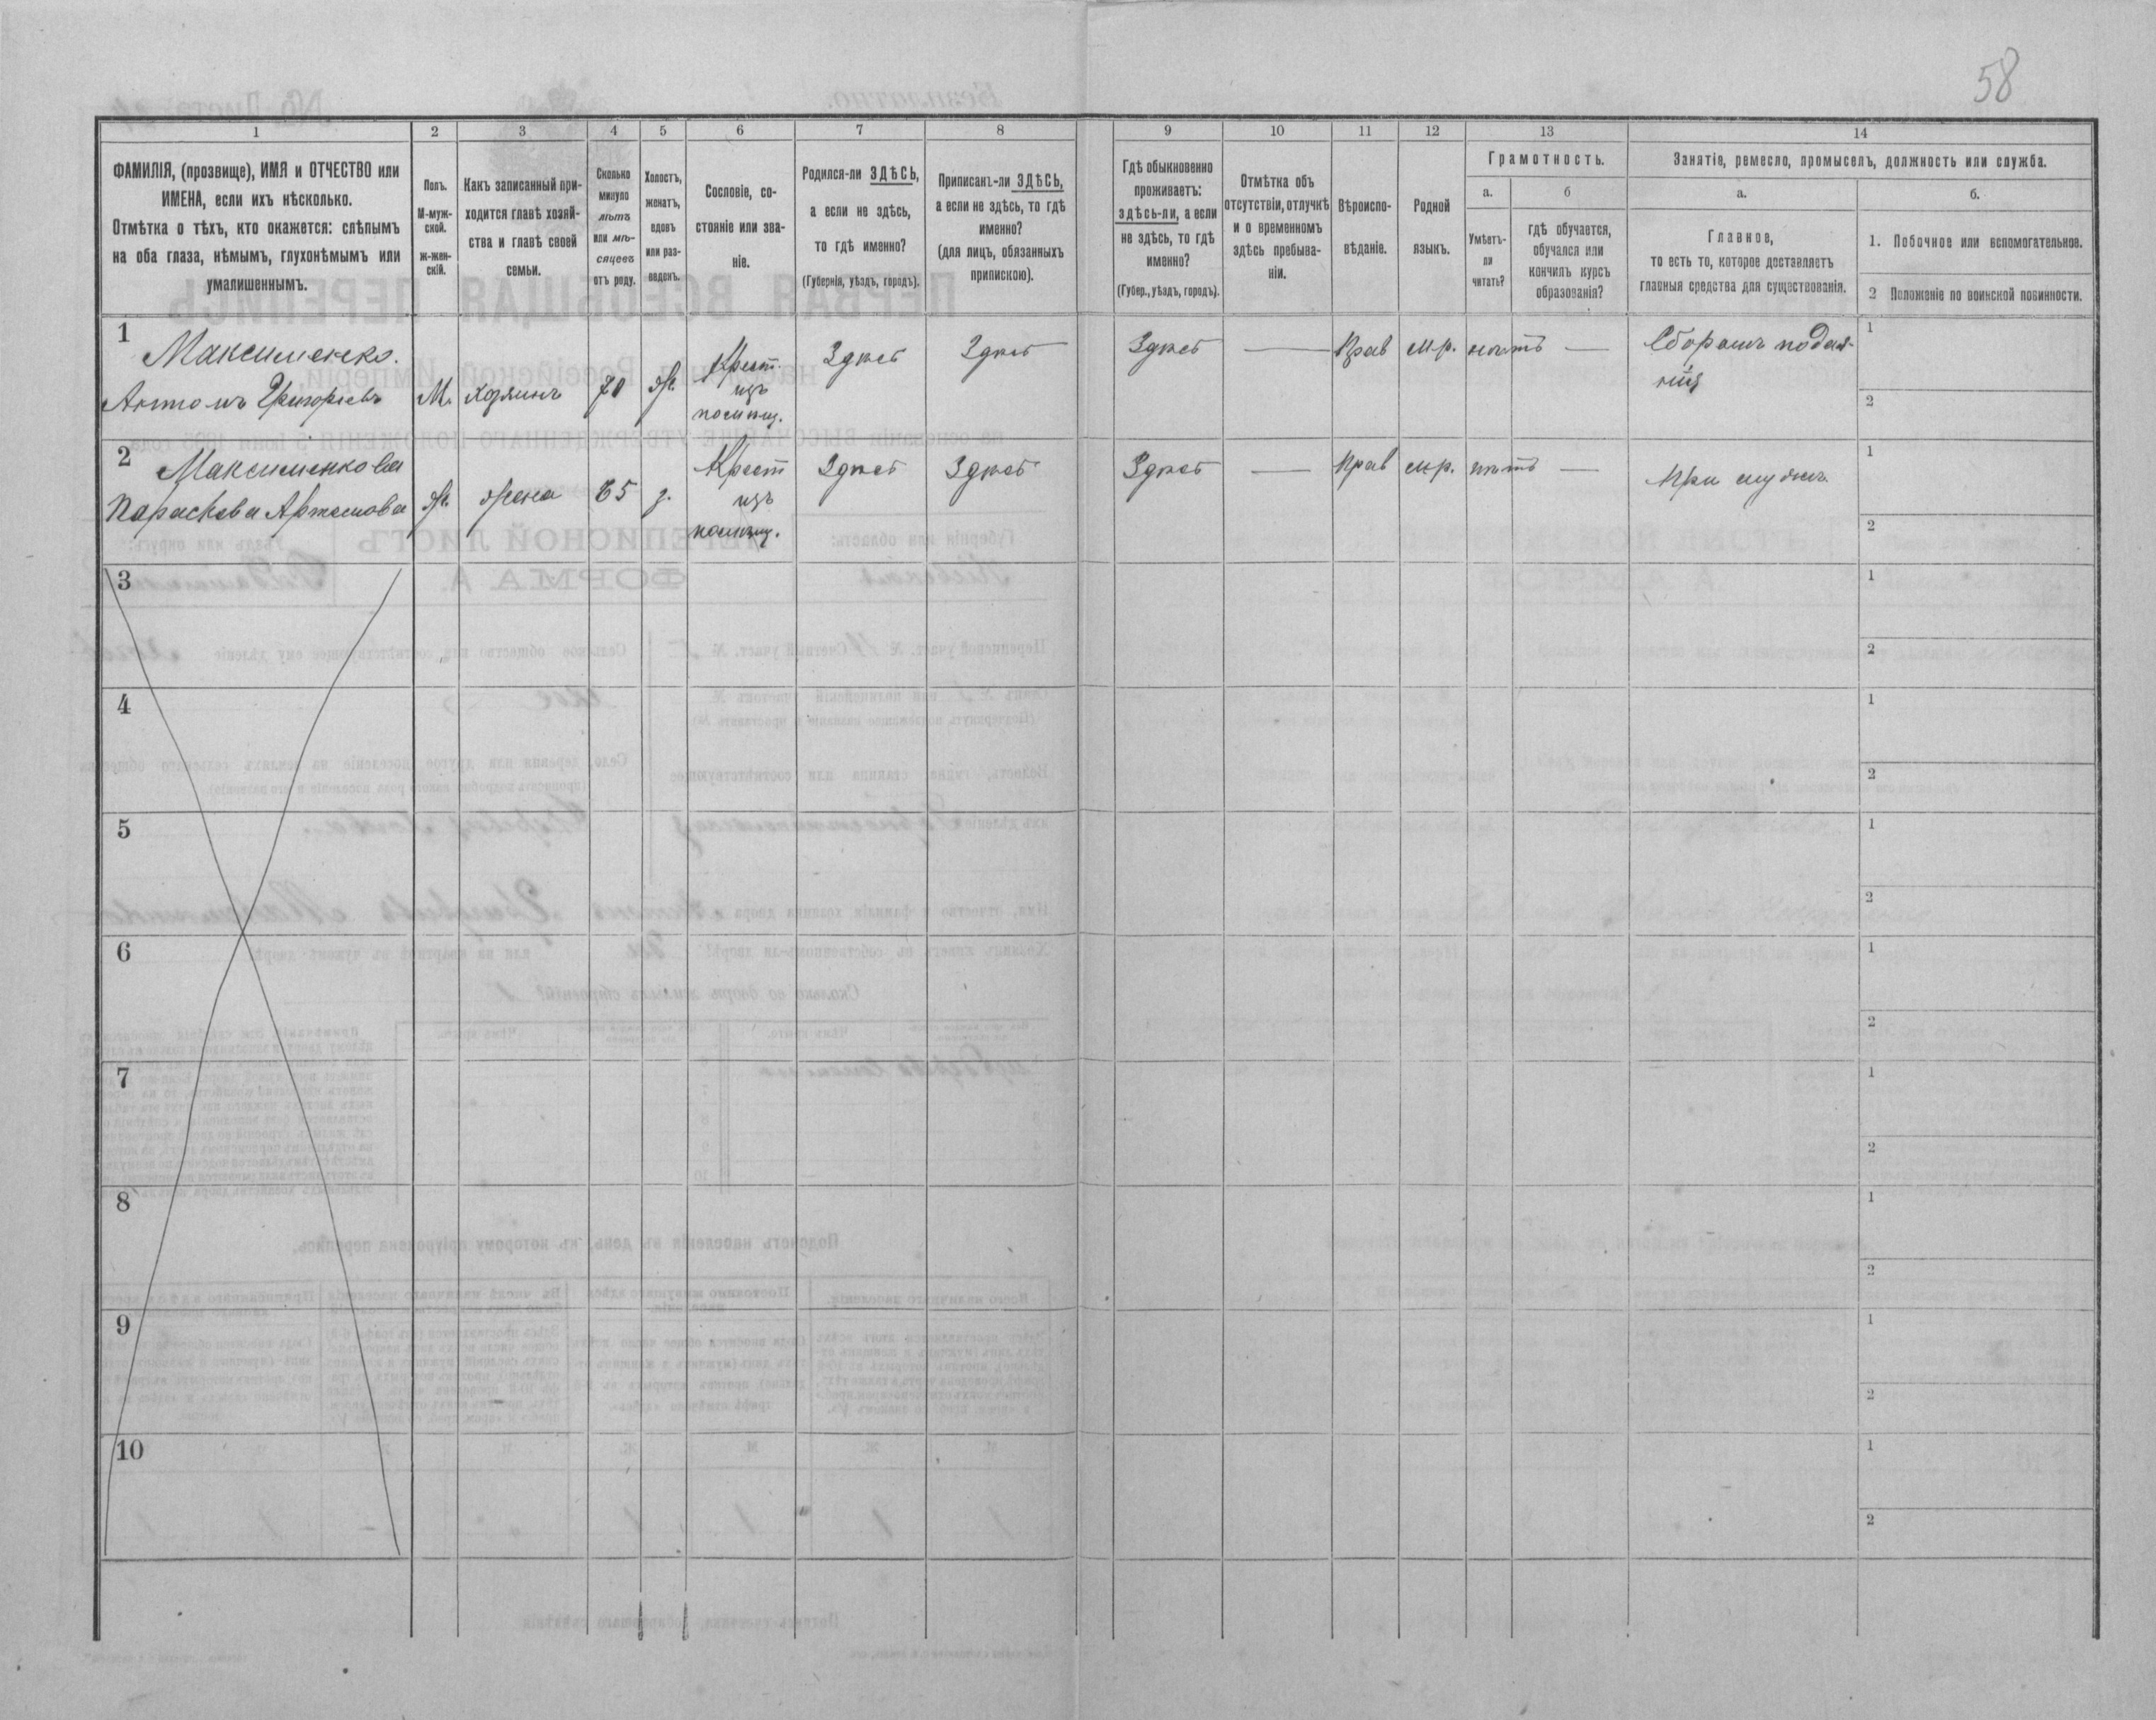 58
1
2
3
4
5
6
7
8
9
10
11
12
13
14
ФАМИЛІЯ, (прозвище), ИМЯ и ОТЧЕСТВО или
ИМЕНА, если ихъ нѣсколько.
Отмѣтка о тѣхъ, кто окажется: слѣпымъ
на оба глаза, нѣмымъ, глухонѣмымъ или
умалишеннымъ.
Полъ.
М-муж-
ской.
ж-жен-
скій.
Какъ записанный при-
ходится главѣ хозяй-
ства и главѣ своей
семьи.
Сколько
минуло
лѣтъ
или мѣ-
сяцевъ
отъ роду.
Холостъ,
женатъ,
вдовъ
или раз-
веденъ.
Сословіе, со-
стояніе или зва-
ніе.
Родился-ли ЗДѢСЬ,
а если не здѣсь,
то гдѣ именно?
(Губернія, уѣздъ, городъ).
Приписанъ-ли ЗДѢСЬ,
а если не здѣсь, то гдѣ
именно?
(для лицъ, обязанныхъ
припискою).
Гдѣ обыкновенно
проживаетъ:
здѣсь-ли, а если
не здѣсь, то гдѣ
именно?
(Губер., уѣздъ, городъ).
Отмѣтка объ
отсутствіи, отлучкѣ
и о временномъ
здѣсь пребыва-
ніи.
Вѣроиспо-
вѣданіе.
Родной
языкъ.
Грамотность.
а.
б
Умѣетъ-
ли
читать?
гдѣ обучается,
обучался или
кончилъ курсъ
образованія?
Занятіе, ремесло, промыселъ, должность или служба.
а.
б.
Главное,
то есть то, которое доставляетъ
главныя средства для существованія.
1. Побочное или вспомогательное.
2 Положеніе по воинской повинности.
1 Максименко.
Антонъ Григорьевъ
М. хозяинъ 70 ж.
Крест.
изъ
Здѣсь Здѣсь Здѣсь — Прав м.р. нѣтъ —
Сборомъ подая-
нія
1
2
2 Максименкова
Параскева Артемова
ж. жена 65 з.
Крест
изъ
Здѣсь Здѣсь Здѣсь — Прав м.р. нѣтъ —
При мужѣ
1
2
3
1
2
4
1
2
5
1
2
6
1
2
7
1
2
8
1
2
9
1
2
10
1
2